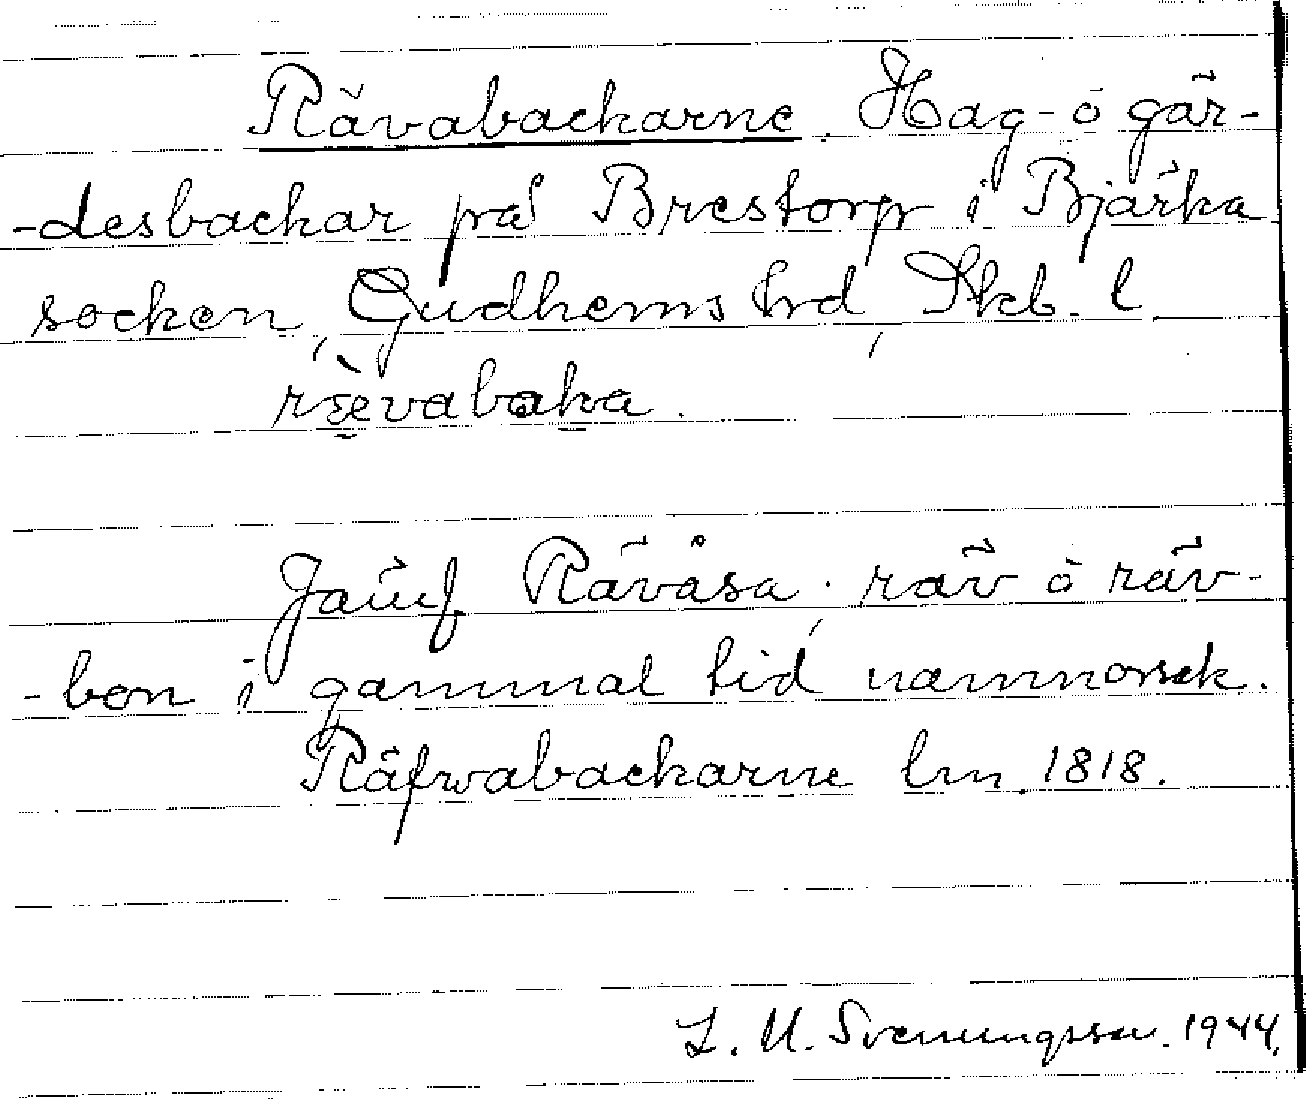 Rävabackarne. Hag- o gär-
-desbackar på Brestorp i Bjärka
socken, Gudhems hrd, Skb. l.
rævabaka.
Jämf Rävåsa; räv o räv-
-ben i gammal tid namnorsak.
Räfwabackarne lm. 1818.
L. U. Svenungsson. 1944.